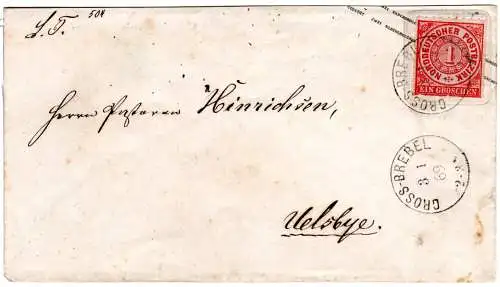 L. T. 504
NORDDEUTSCHER POSTBEZIRK
1
EIN GROSCHEN
GROSS-BREBEL
Herrn Pastoren Hinrichsen,
GROSS-BREBEL
3 1
69
Uelsbye.